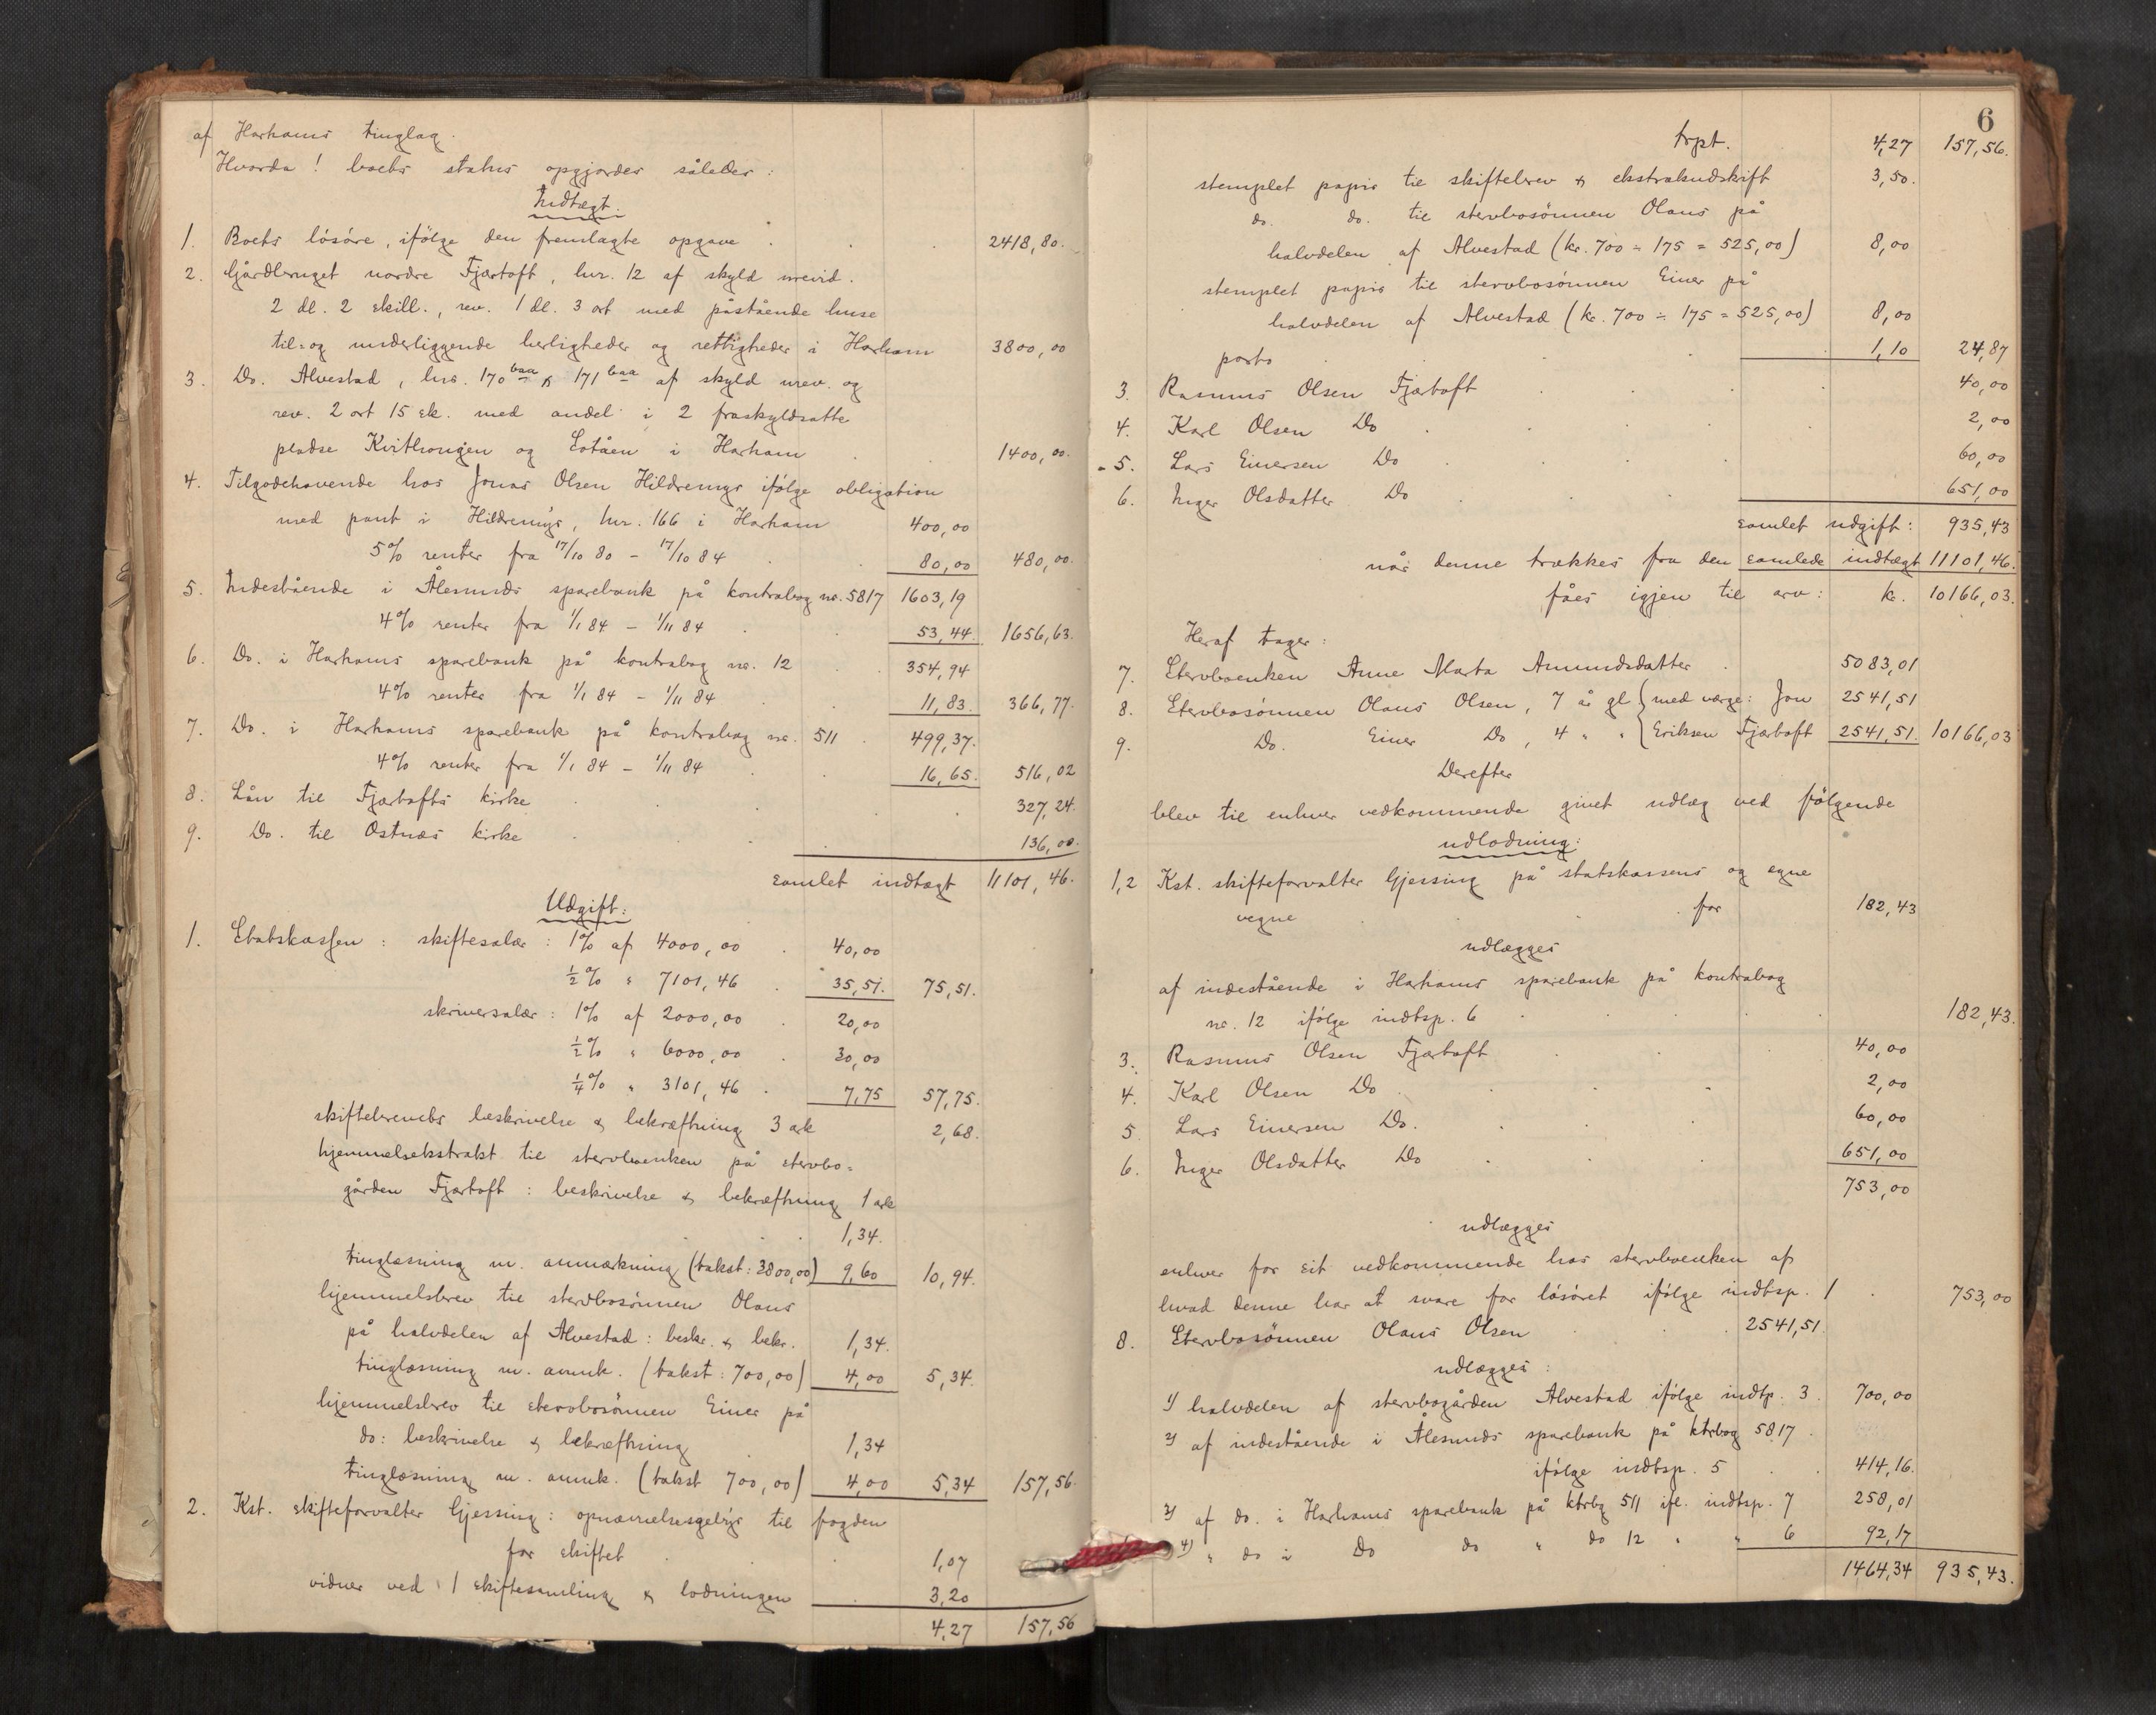 af Harhams tinglag.
Hvorda! boets status opgjordes således:
Indtægt.
1. Boets lösöre, ifölge den fremlagte opgave . . . 2418,80.
2. Gårdbruget nordre Fjærtoft, lnr. 12 af skyld urevid.
2 dl. 2 skill., rev. 1 dl. 3 ort med påstående huse
til- og underliggende herligheder og rettigheder i Harham 3800,00
3. Do. Alvestad, lnr. 170 baa & 171 baa af skyld urev. og
rev. 2 ort 15 sk. med andel i 2 fraskyldsatte
pladse Kvithougen og Lotåen i Harham 1400,00.
4. Tilgodehavende hos Jonas Olsen Hildrenys ifölge obligation
med pant i Hildrenys, lnr. 166 i Harham 400,00
5% renter fra 17/10 80 – 17/10 84 . . 80,00 480,00.
5. Indestående i Ålesunds sparebank på kontrabog nr. 5817 1603,19
4% renter fra 1/1 84 – 1/11 84 . . 53,44. 1656,63.
6. Do. i Harhams sparebank på kontrabog nr. 12 . . 354,94
4% renter fra 1/1 84 – 1/11 84 . . 11,83. 366,77.
7. Do. i Harhams sparebank på kontrabog nr. 511 . 499,37.
4% renter fra 1/1 84 – 1/11 84 . . 16,65. 516,02
8. Lån til Fjærtofts kirke . . . 327,24.
9. Do. til Østnæs kirke . . . 136,00.
samlet indtægt 11101,46.
Udgift:
1. Statskassen: skiftesalær: 1% af 4000,00 . 40,00
½% " 7101,46 . 35,51. 75,51.
skriversalær: 1% af 2000,00 . 20,00
½% " 6000,00 . 30,00
¼% " 3101,46 . 7,75 57,75.
skiftebrevets beskrivelse & bekræftning 3 ark 2,68.
hjemmelsekstrakt til stervboenken på stervbo-
gården Fjærtoft: beskrivelse & bekræftning 1 ark
. . . 1,34.
tinglæsning m. anmærkning (takst: 3800,00) 9,60 10,94.
hjemmelsbrev til stervbosönnen Olaus
på halvdelen af Alvestad: beskr. & bekr. 1,34.
tinglæsning m. anmk. (takst: 700,00) 4,00 5,34.
hjemmelsbrev til stervbosönnen Einer på
do: beskrivelse & bekræftning 1,34
tinglæsning m. anmk. (takst 700,00) 4,00 5,34 157,56.
2. Kst. skifteforvalter Gjessing: opnævnelsesgebyr til fogden
for skiftet . . 1,07
vidner ved 1 skiftesamling & lodningen . 3,20
4,27 157,56
6
trpt. 4,27 157,56.
stemplet papir til skiftebrev & ekstraktudskrift 3,50.
do. do. til stervbosönnen Olaus på
halvdelen af Alvestad (kr. 700 ÷ 175 = 525,00) 8,00
stemplet papir til stervbosönnen Einer på
halvdelen af Alvestad (kr. 700 ÷ 175 = 525,00) 8,00
porto . . . . 1,10 24,87
3. Rasmus Olsen Fjærtoft . . . 40,00
4. Karl Olsen Do . . . 2,00
5. Lars Einersen Do . . . 60,00
6. Inger Olsdatter Do . . . 651,00
samlet udgift: 935,43
når denne trækkes fra den samlede indtægt 11101,46.
fåes igjen til arv: kr. 10166,03.
Heraf tager:
7. Stervboenken Anne Marta Amundsdatter . 5083,01
8. Stervbosönnen Olaus Olsen, 7 år gl { med verge: Jon 2541,51
9. Do. Einer Do, 4 " " { Eriksen Fjærtoft 2541,51. 10166,03
Derefter
blev til enhver vedkommende givet udlæg ved fölgende
udlodning:
1,2 Kst. skifteforvalter Gjessing på statskassens og egne
vegne . . . for 182,43
udlægges
af indestående i Harhams sparebank på kontrabog
nr. 12 ifölge indtsp. 6 . . . . 182,43.
3. Rasmus Olsen Fjærtoft . . 40,00
4. Karl Olsen Do . . . 2,00
5. Lars Einersen Do. . . . 60,00
6. Inger Olsdatter Do . . . 651,00
753,00
udlægges
enhver for sit vedkommende hos stervboenken af
hvad denne har at svare for lösöret ifölge indtsp. 1 . 753,00
8. Stervbosönnen Olaus Olsen . . 2541,51.
udlægges:
1) halvdelen af stervbogården Alvestad ifölge indtp. 3. 700,00
2) af indestående i Ålesunds sparebank på ktrbog 5817 .
ifölge indtsp. 5 . . 414,16.
3) af do. i Harhams sparebank på ktrbg 511 ifl. indtsp. 7 258,01
4) " do i Do do " do 12 " " 6 92,17
1464,34 935,43.